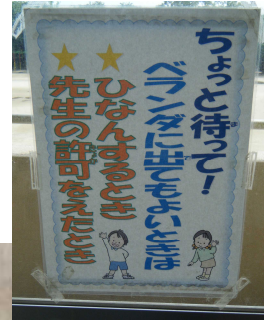 ちょっと待って!
ベランダに出てもよいときは
★ひなんするとき
★先生の許可をえたとき